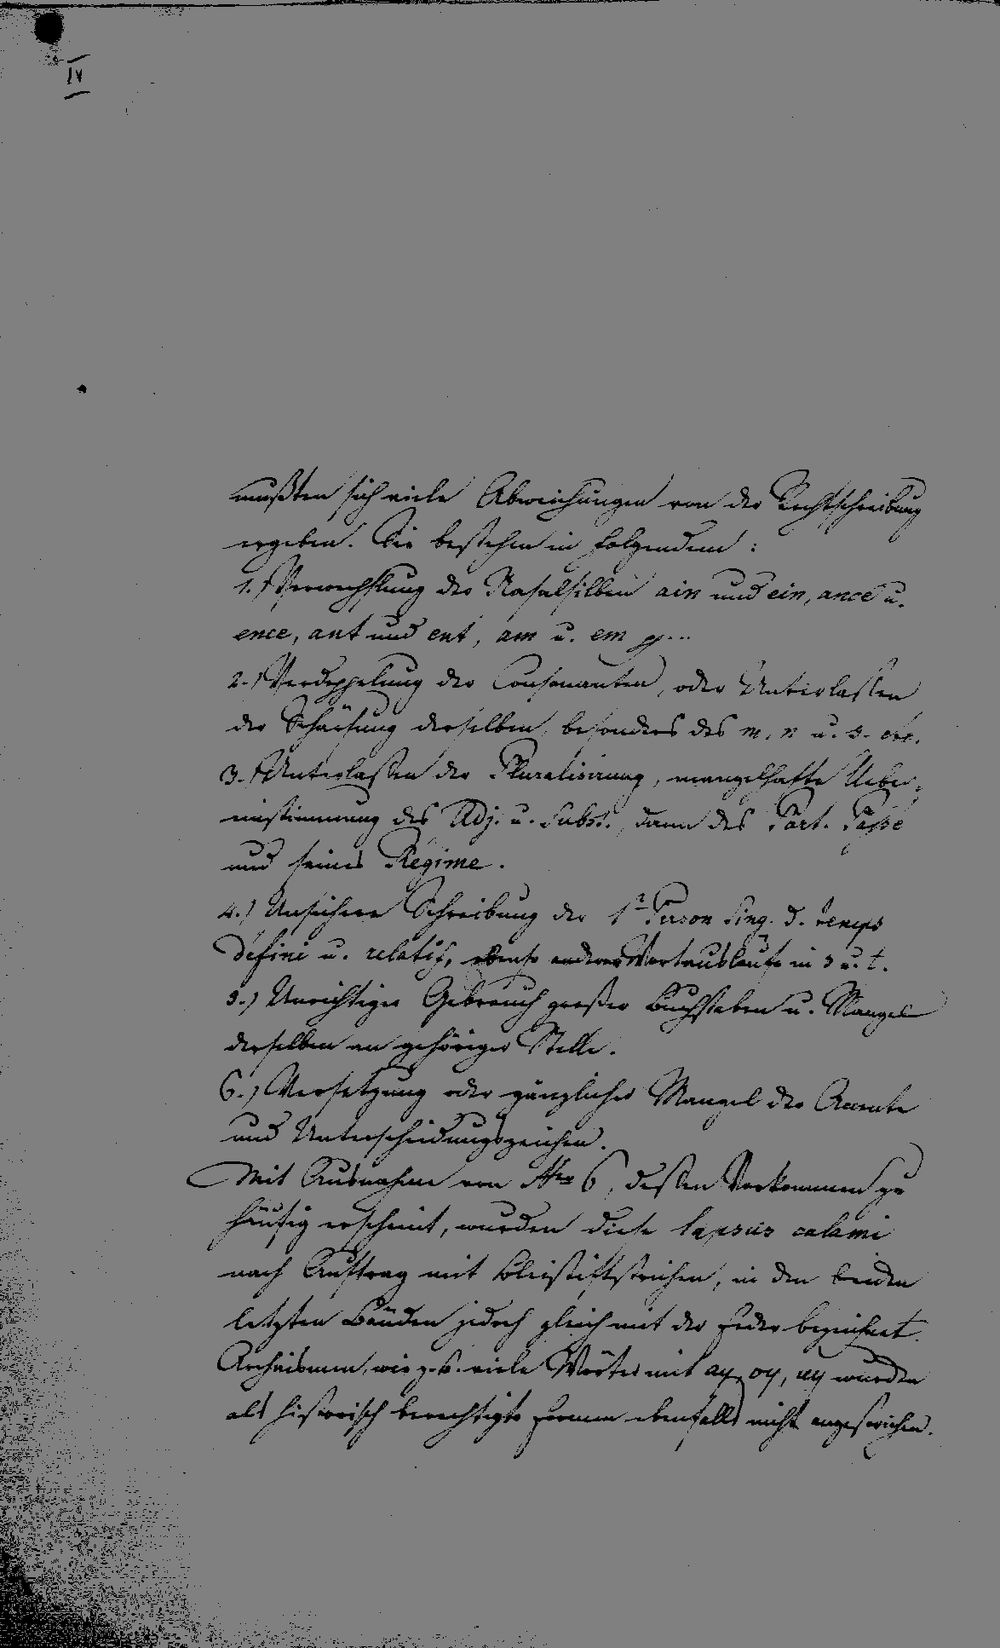 IV
mußten sich viele Abweichungen von der Rechtschreibung
ergeben. Sie bestehen in Folgendem:
1.) Verwechslung der Nasalsilben ain und ein, ance u.
ence, ant und ent, am u. em
2.) Verdoppelung der Consonanten, oder Unterlassen
der Schärfung derselben, besonders des m, n u. s. etc.
3.) Unterlaßen der Pluralisirung, mangelhafte Ueber-
einstimmung des Adj. u. Subst., dann des Part. Passé
und seines Régime.
4.) Unsichere Schreibung der 1r Person Sing. d. temps
défini u. relatif, ebenso anderer Wortausläufe in s u. t.
5.) Unrichtiger Gebrauch großer Buchstaben u. Mangel
derselben an gehöriger Stelle.
6.) Versetzung oder gänzlicher Mangel der Accente
und Unterscheidungszeichen.
Mit Ausnahme von Nro 6, deßen Vorkommen zu
häufig erscheint, wurden diese lapsus calami
nach Auftrag mit Bleistiftstrichen, in den beiden
letzten Bänden jedoch gleich mit der Feder bezeichnet.
Archaismen, wie z. B. viele Wörter mit ay, oy, uy wurden
als historisch berechtigte Formen ebenfalls nicht angestrichen.